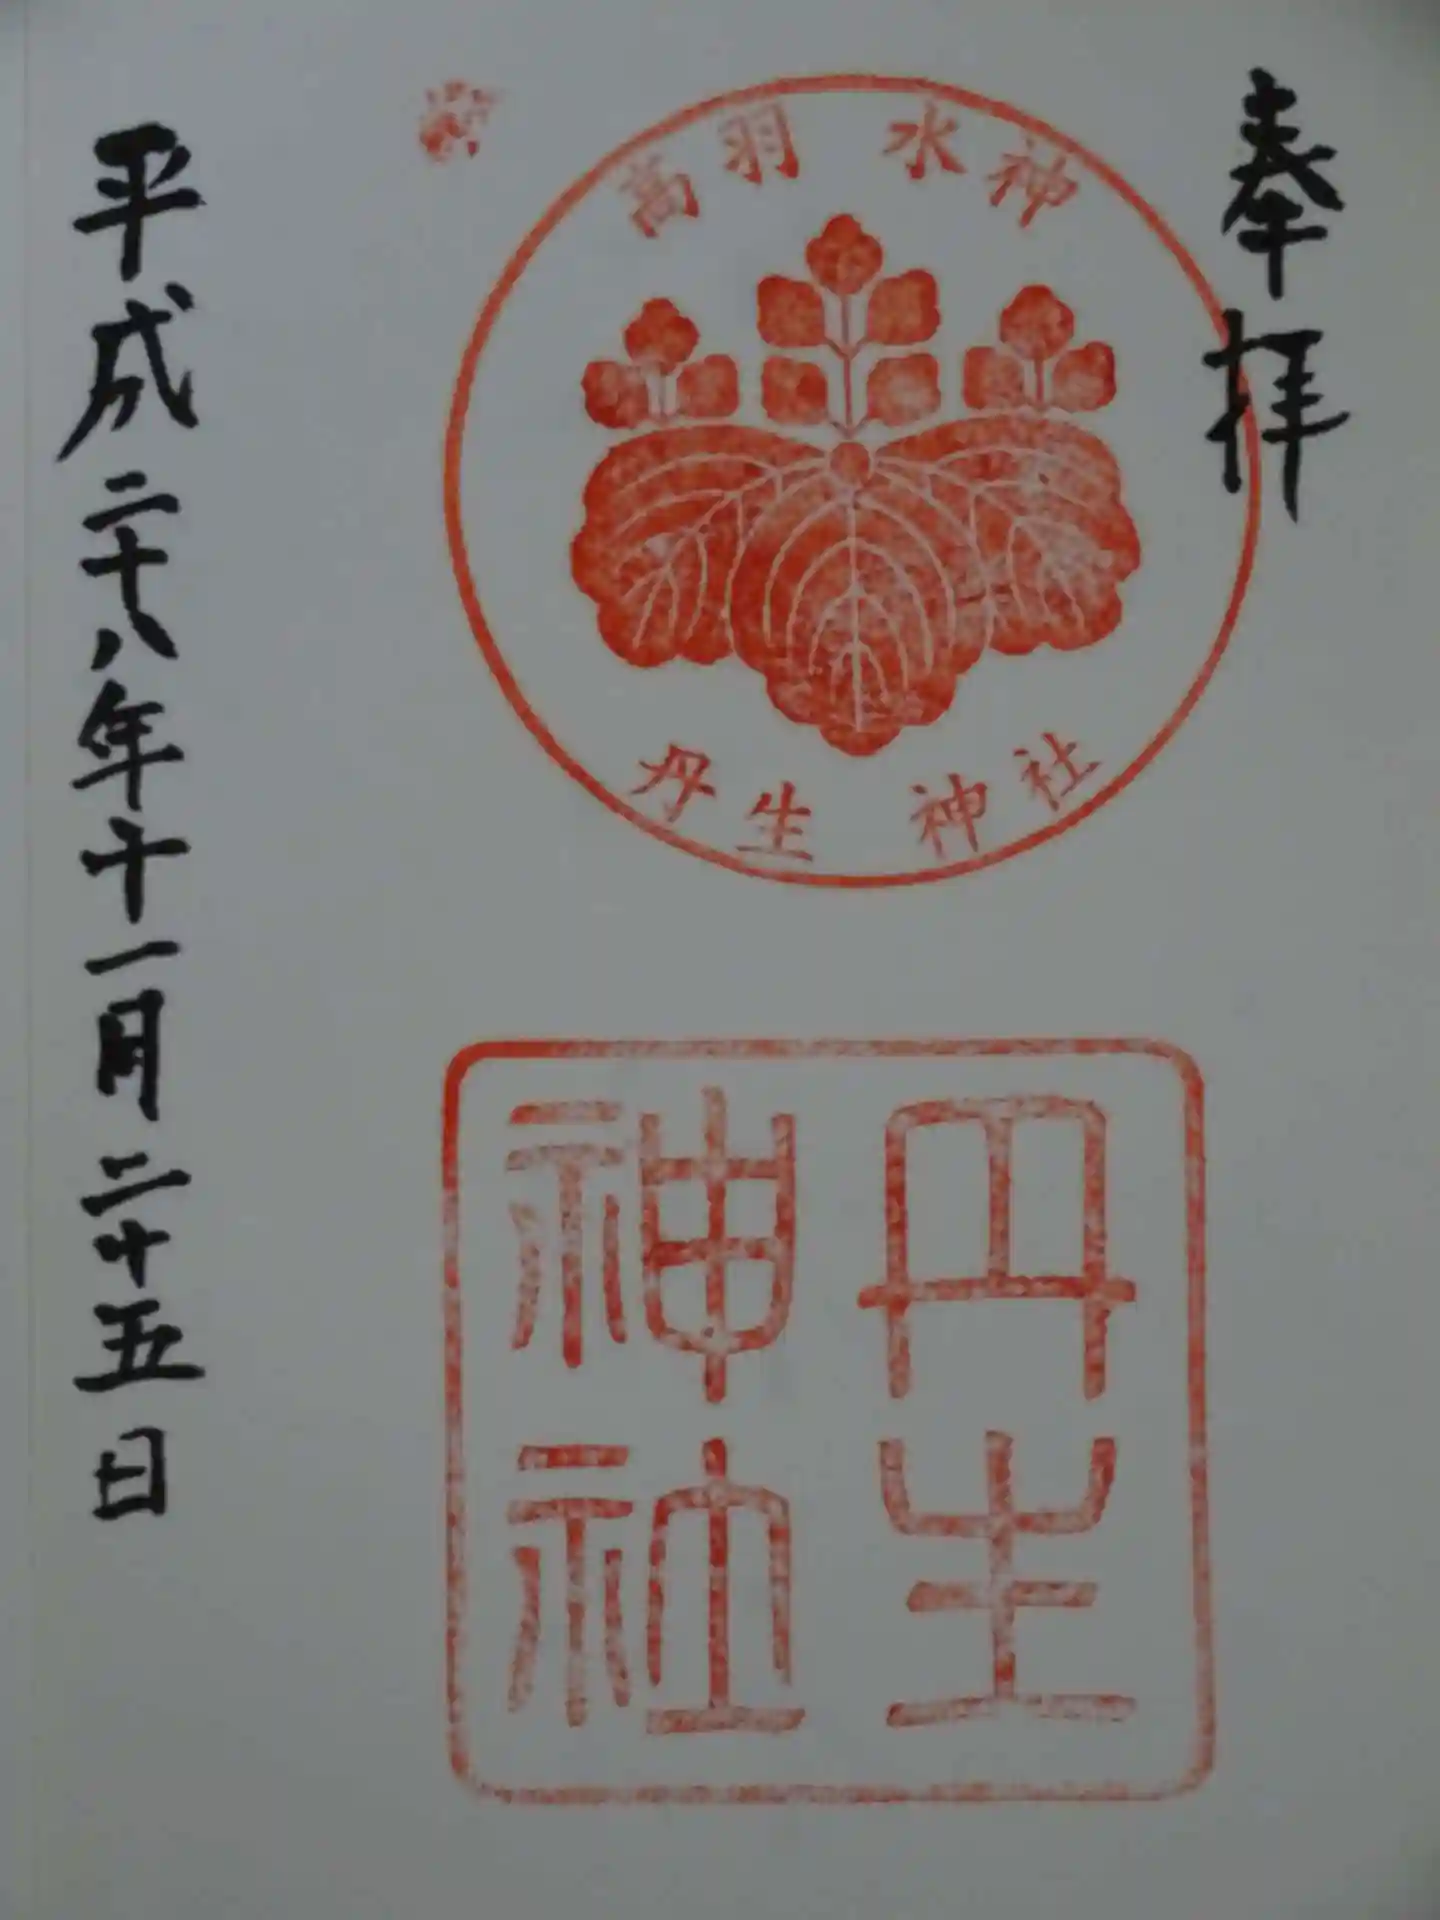 奉拝
高羽 水神
丹生 神社
丹生
神社
平成二十八年十一月二十五日